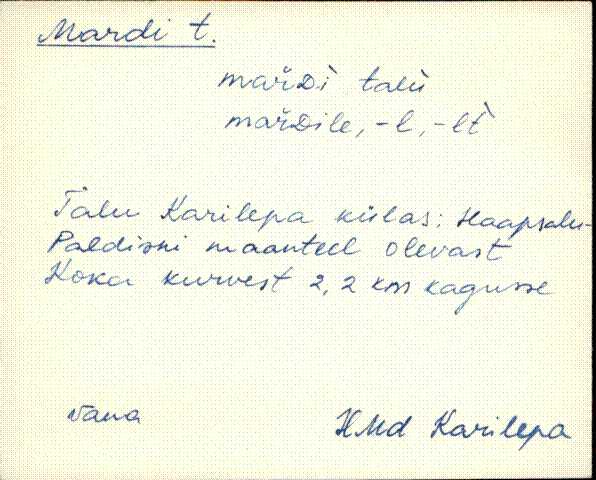 Mardi t.
mařDì talù
mařDile, -l, -lt
Talu Karilepa külas: Haapsalu-
Paldiski maanteel olevast
Koka kurvest 2,2 km kagusse
vana
HMd Karilepa